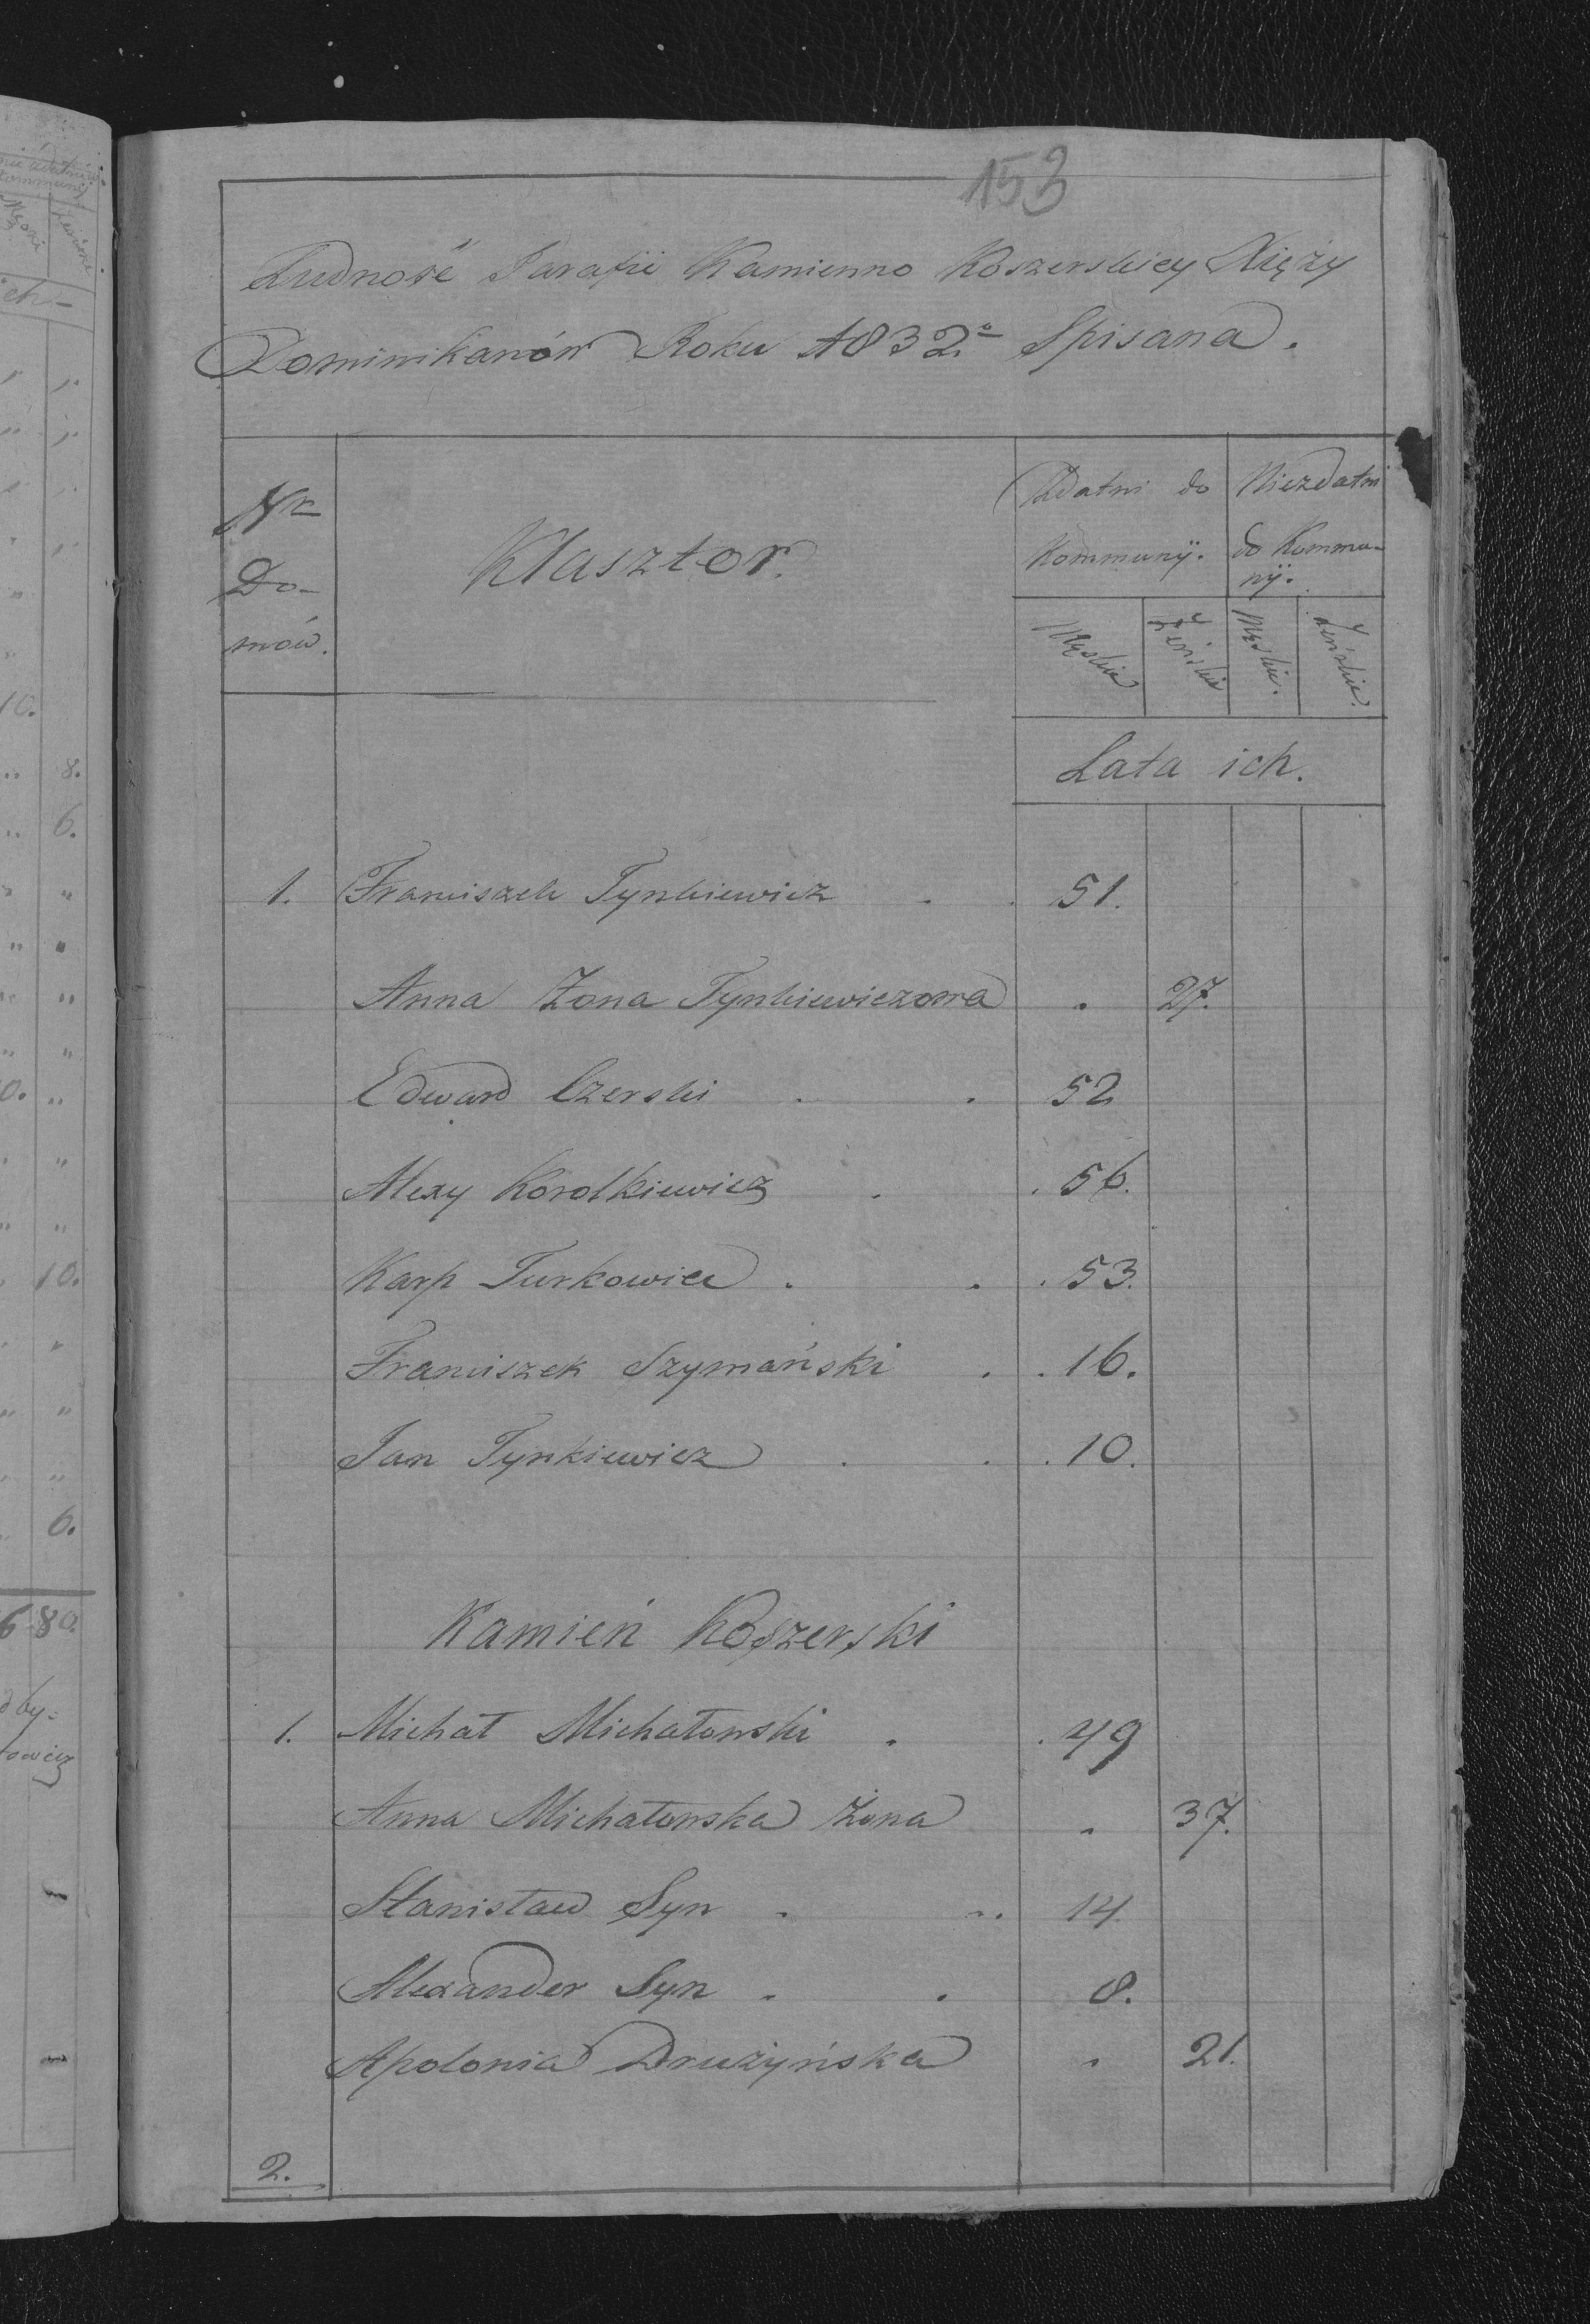 153
Ludność Parafii Kamienno Koszerskiey Xięży
Dominikanów Roku 1832o Spisana.
Nr Do-mów.
Klasztor.
Zdatni do Kommunÿ.
Niezdatni do Kommu-nÿ.
Męskie
Żeńskie
Męskie.
Żeńskie.
Lata ich.
1. Franciszek Tynkiewicz . . 51.
Anna Żona Tynkiewiczowa . 27.
Edward Czerski . . 52
Alexy Korolkiewicz . . 56.
Karp Turkowicz . . . 53.
Franciszek Szymański . . 16.
Jan Tynkiewicz . . . 10.
Kamień Koszerski
1. Michał Michałowski . . 49
Anna Michałowska Żona . 37.
Stanisław Syn . .. 14.
Alexander Syn . . 8.
Apolonia Drużyńska . 21.
2.
ich-
10.
8.
6.
0.
10.
6.
680.